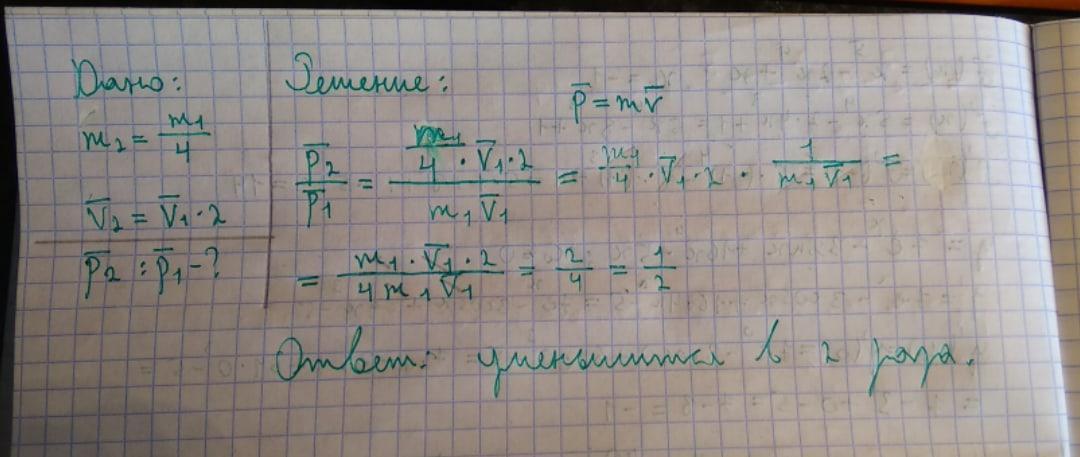 Дано:
m₂ = m₁/4
V̅₂ = V̅₁·2
p̅₂ : p̅₁ - ?
Решение:
p̅ = mv̅
p̅₂/p̅₁ = (m₁/4 · V̅₁ · 2)/(m₁V̅₁) = m₁/4 · V̅₁ · 2 · 1/(m₁V̅₁) =
= (m₁ · V̅₁ · 2)/(4m₁V̅₁) = 2/4 = 1/2
Ответ: уменьшится в 2 раза.